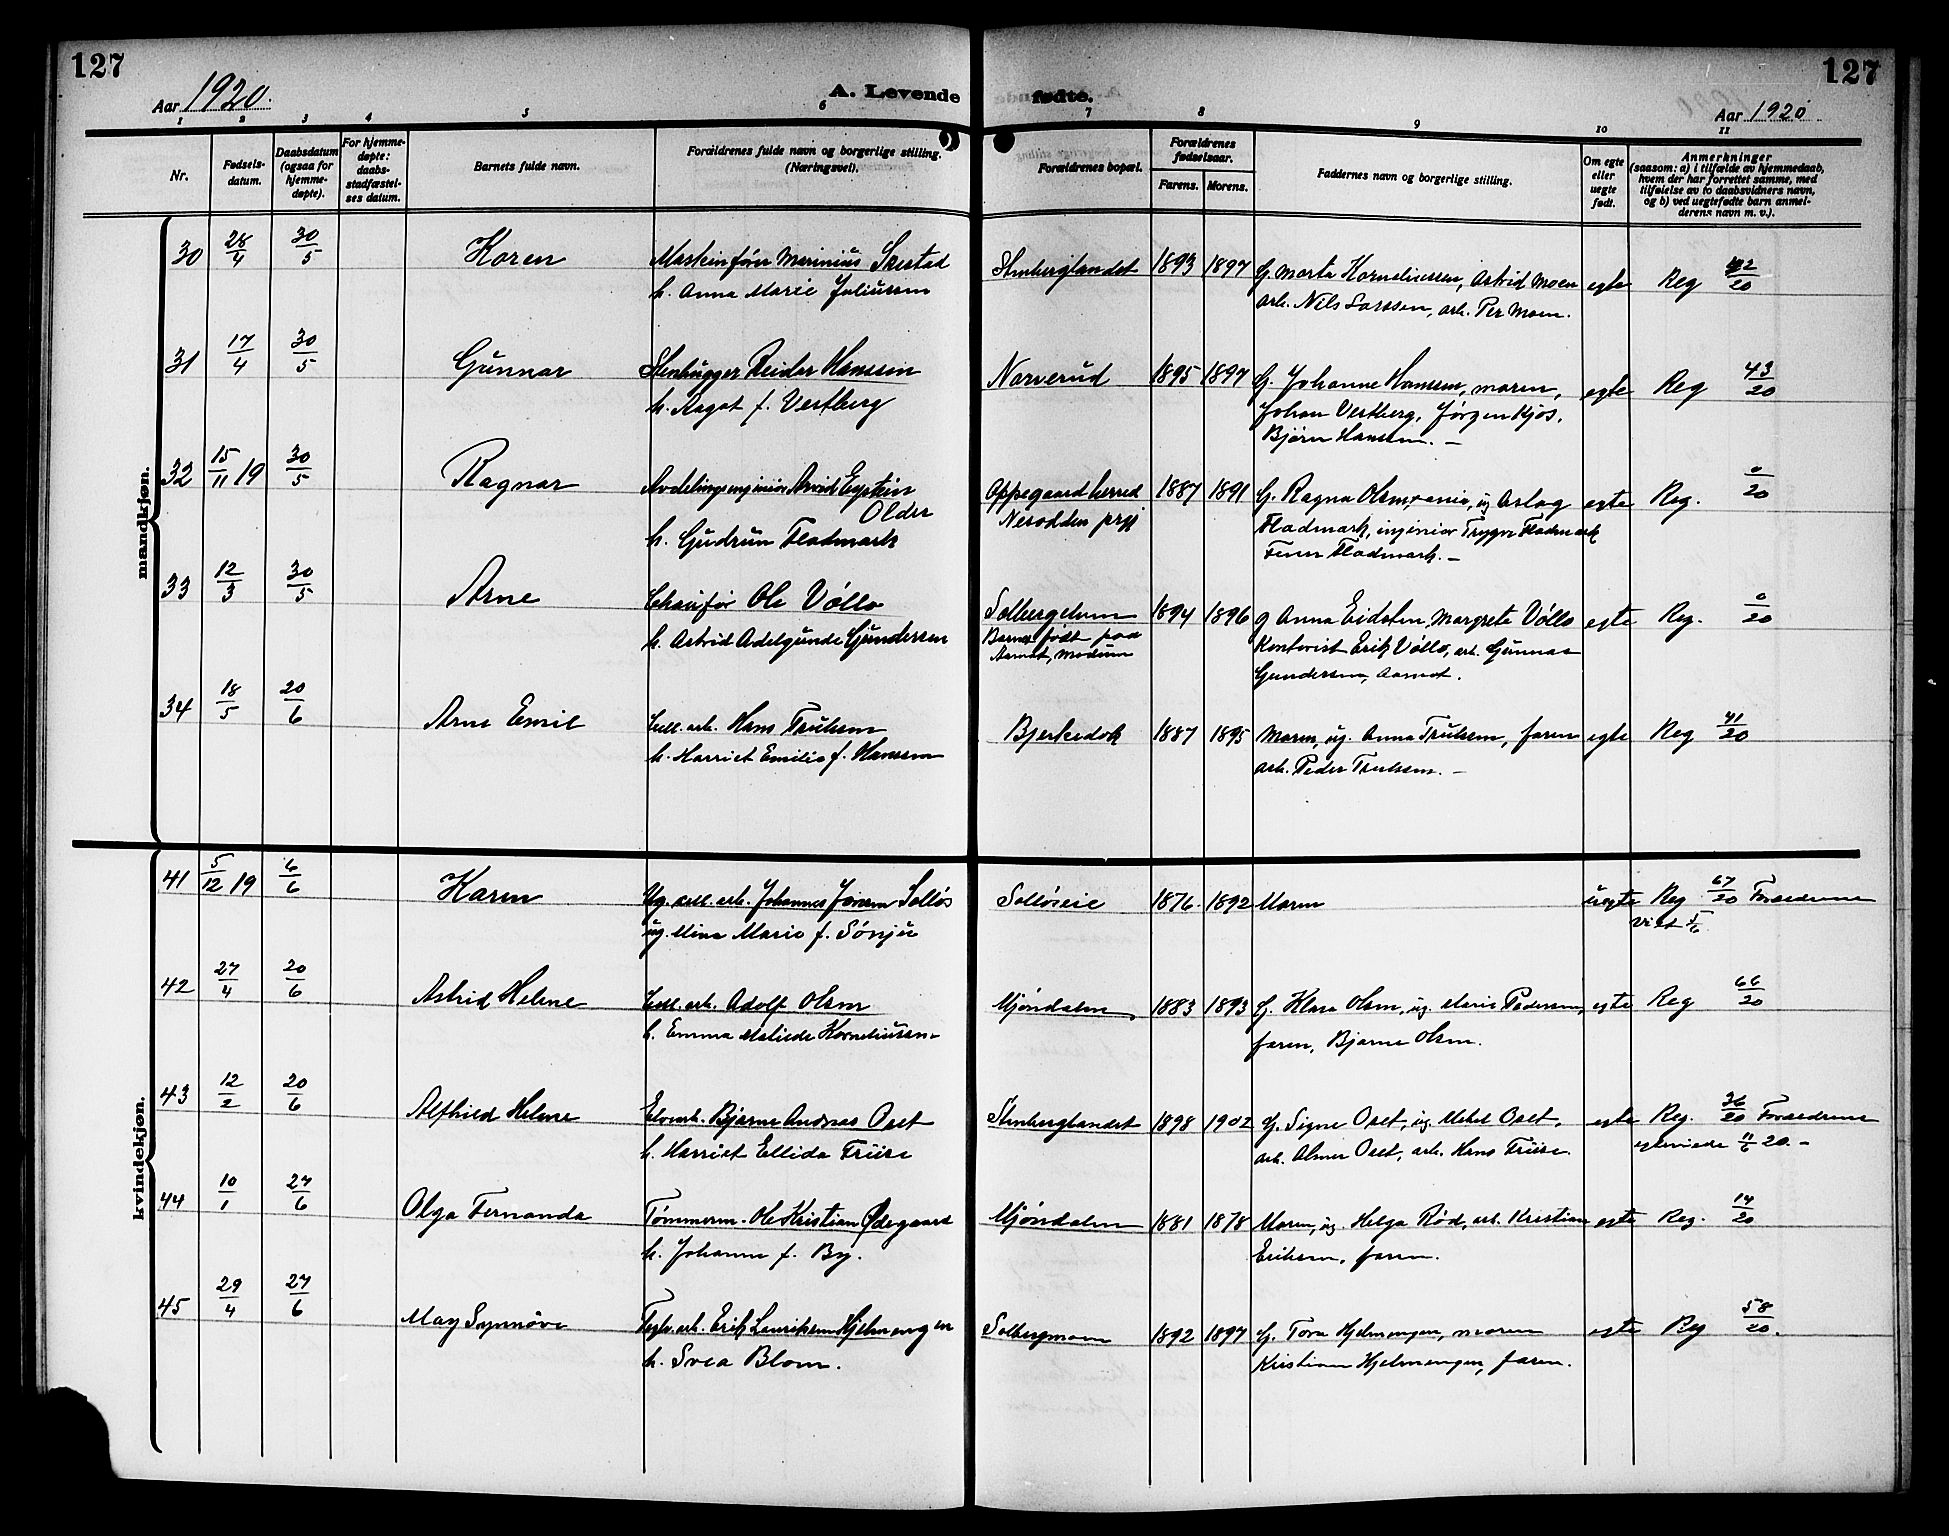 127
127
Aar 1920.
A. Levende
fødte.
Aar 1920
1 2 3 4 5 6 7 8 9 10 11
Nr.
Fødsels-
datum.
Daabsdatum
(ogsaa for
hjemme-
døpte).
For hjemme-
døpte:
daabs-
stadfæstel-
ses datum.
Barnets fulde navn.
Forældrenes fulde navn og borgerlige stilling.
(Næringsvei).
Forældrenes bopæl.
Forældrenes
fødselsaar.
Farens. Morens.
Faddernes navn og borgerlige stilling.
Om egte
eller
uegte
født.
Anmerkninger
(saasom: a) i tilfælde av hjemmedaab,
hvem der har forrettet samme, med
tilføielse av to daabsvidners navn,
og b) ved uegtefødte barn anmel-
derens navn m. v.).
mandkjøn.
30 28/4 30/5 Koren Maskinfører Marinius Skistad Stenberglandet 1893 1897 G. Marta Korneliussen, Astrid Moen egte Reg 42/20
h. Anna Marie Juliussen arb. Nils Larssen, arb. Per Moen.
31 17/4 30/5 Gunnar Stenhugger Reidar Hanssen Narverud 1895 1897 G. Johanne Hanssen, moren, egte Reg 43/20
h. Aagot f. Vestberg Johan Vestberg, Jørgen Kjos,
Bjørn Hanssen. —
32 15/11 19 30/5 Ragnar Avdelingsingeniør Arvid Eystein Oppegaard herred 1887 1891 G. Ragna Olsen, ug Aslag egte Reg. 0/20
Older Nesodden prgj Fladmark, ingeniør Trygve Fladmark
h. Gudrun Fladmark Fladmark. —
33 12/3 30/5 Arne Chauffør Ole Vollo Solbergelven 1894 1896 g Anna Eidsten, Margrete Vollo egte Reg. 0/20
h. Astrid Adelgunde Gundersen Barnet født paa Kontorist Erik Vollo, arb. Gunnar
Aamot, Modum Gundersen, Aamot.
34 18/5 20/6 Arne Emil Cell. arb. Hans Trulsen Bjerkedok 1887 1895 Moren, ug. Anna Trulsen, faren egte Reg 41/20
h. Harriet Emilie f. Hanssen arb. Peder Trulsen. —
kvindekjøn.
41 5/12 19 6/6 Karen Ug. cell. arb. Johannes Jonsen Solløs Solløseie 1876. 1892 Moren uegte Reg 67/20 Forældrene
ug. Mina Marie f. Sønju viet 5/6
42 27/4 20/6 Astrid Helene Cell. arb. Adolf Olsen Mjøndalen 1883 1893 G. Klara Olsen, ug. Marie Pedersen, egte Reg 66/20
h. Emma Matilde Korneliussen faren, Bjarne Olsen.
43 12/2 20/6 Alfhild Helene Elvearb. Bjarne Andreas Oset Stenberglandet 1898 1902 G. Signe Oset, ug. Oset, egte Reg. 36/20 Forældrene
h. Harriet Ellida Friise arb. Almer Oset, arb. Hans Friise. egteviede 11/6 20. —
44 10/1 27/6 Olga Fernanda Tømmerm. Ole Kristian Ødegaard Mjøndalen 1881 1878 Moren, ug. Helga Rød, arb. Kristian egte Reg. 14/20
h. Johanne f. By. Eriksen, faren.
45 29/4 27/6 May Synnøve Teglv. arb. Erik Lauriksen Hjelmengen Solbergmoen 1892 1897 G. Tora Hjelmengen, moren egte Reg 58/20.
h. Svea Blom. Kristian Hjelmengen, faren.